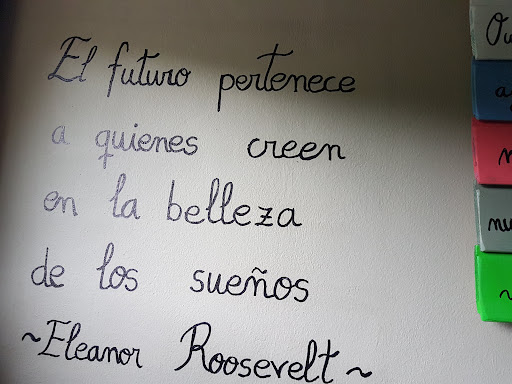 El futuro pertenece
a quienes creen
en la belleza
de los sueños
~Eleanor Roosevelt~